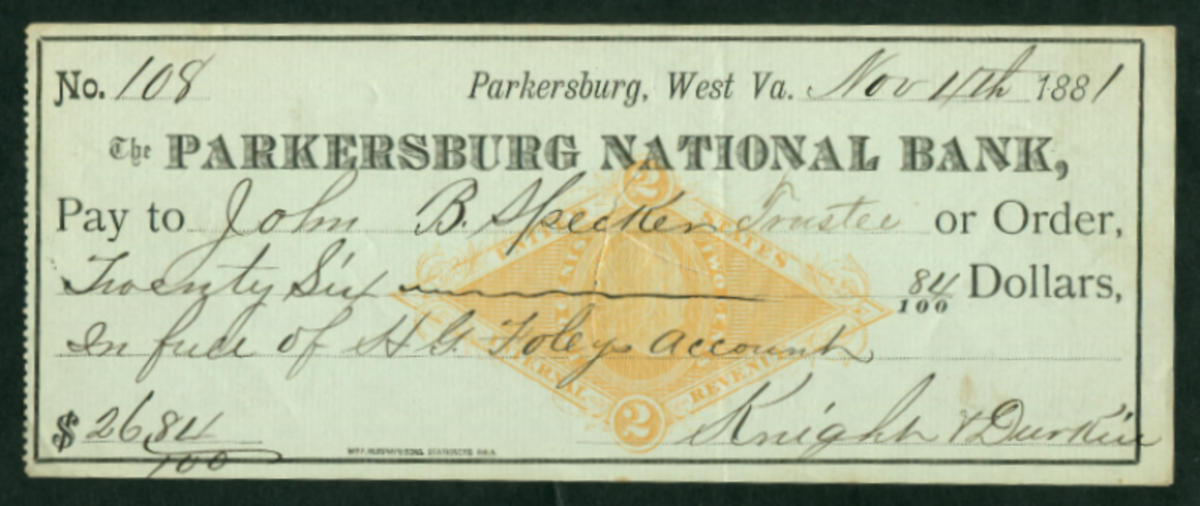 No. 108 Parkersburg, West Va. Nov 11th 1881
The PARKERSBURG NATIONAL BANK,
Pay to John B. Specker Trustee or Order,
Twenty Six 84/100 Dollars,
In full of H G. Foleys account
$ 26 84/100 Knight & Durkin
2
UNITED STATES
INTERNAL REVENUE
2